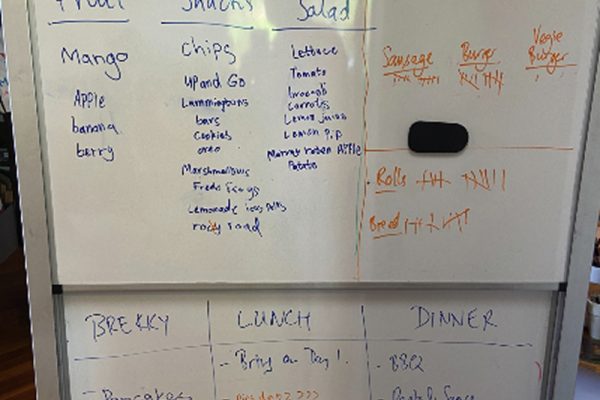 Fruit
Mango
Apple
banana
berry
Snacks
Chips
UP and Go
Lammingtons
bars
Cookies
oreo
Marshmallows
Fredo Frogs
Lemonade icey Poles
rocky road
Salad
Lettuce
Tomato
brocoli
carrots
Lemon juice
Lemon Pip
Potato
Sausage
Burger
Vegie
Burger
Rolls
Bread
BREKKY
LUNCH
DINNER
- Bring on Day 1.
- BBQ
- Pancakes